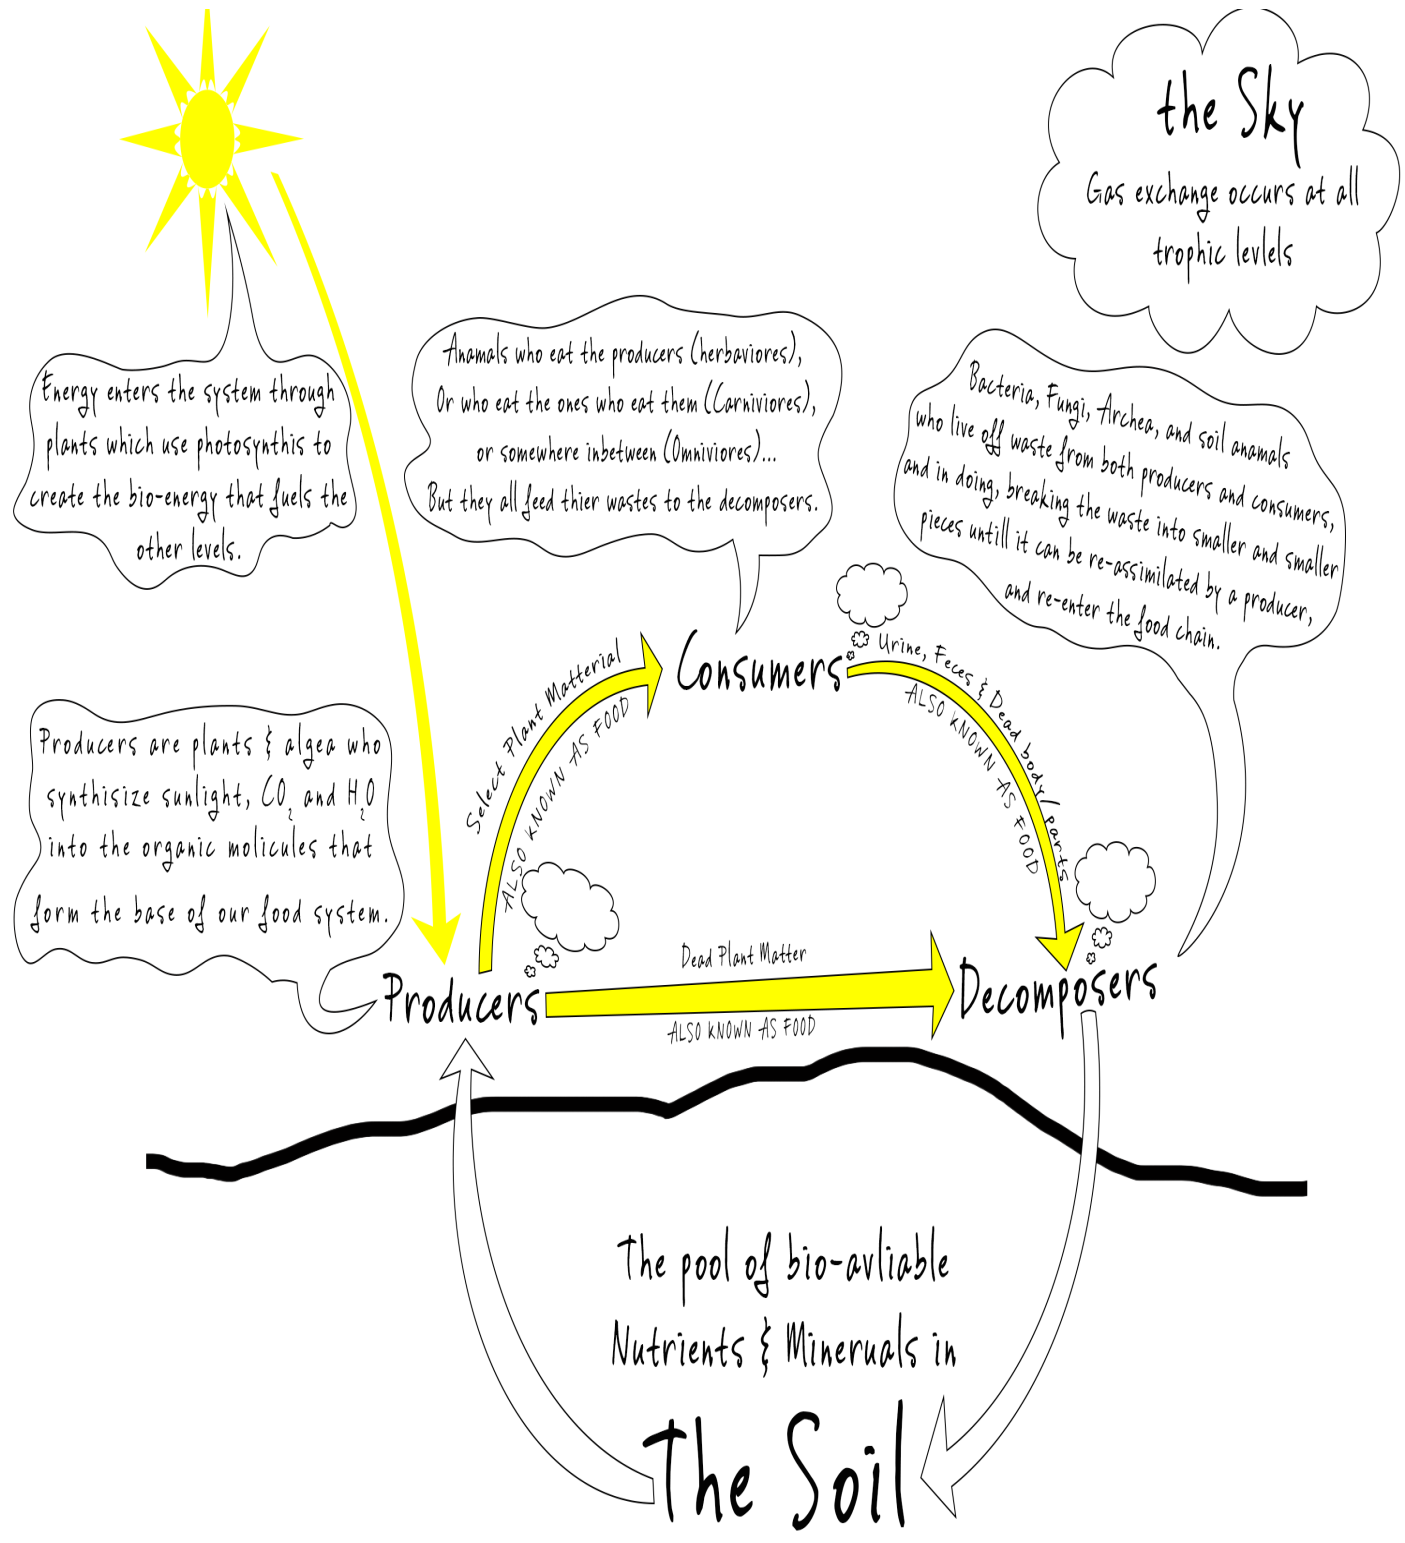 the Sky
Gas exchange occurs at all
trophic levlels
Energy enters the system through
plants which use photosynthis to
create the bio-energy that fuels the
other levels.
Anamals who eat the producers (herbaviores),
Or who eat the ones who eat them (Carniviores),
or somewhere inbetween (Omniviores)...
But they all feed thier wastes to the decomposers.
Bacteria, Fungi, Archea, and soil anamals
who live off waste from both producers and consumers,
and in doing, breaking the waste into smaller and smaller
pieces untill it can be re-assimilated by a producer,
and re-enter the food chain.
Producers are plants & algea who
synthisize sunlight, CO₂ and H₂O
into the organic molicules that
form the base of our food system.
Select Plant Matterial
ALSO KNOWN AS FOOD
Consumers
Urine, Feces & Dead body/parts
ALSO KNOWN AS FOOD
Producers
Dead Plant Matter
ALSO KNOWN AS FOOD
Decomposers
The pool of bio-avliable
Nutrients & Mineruals in
The Soil